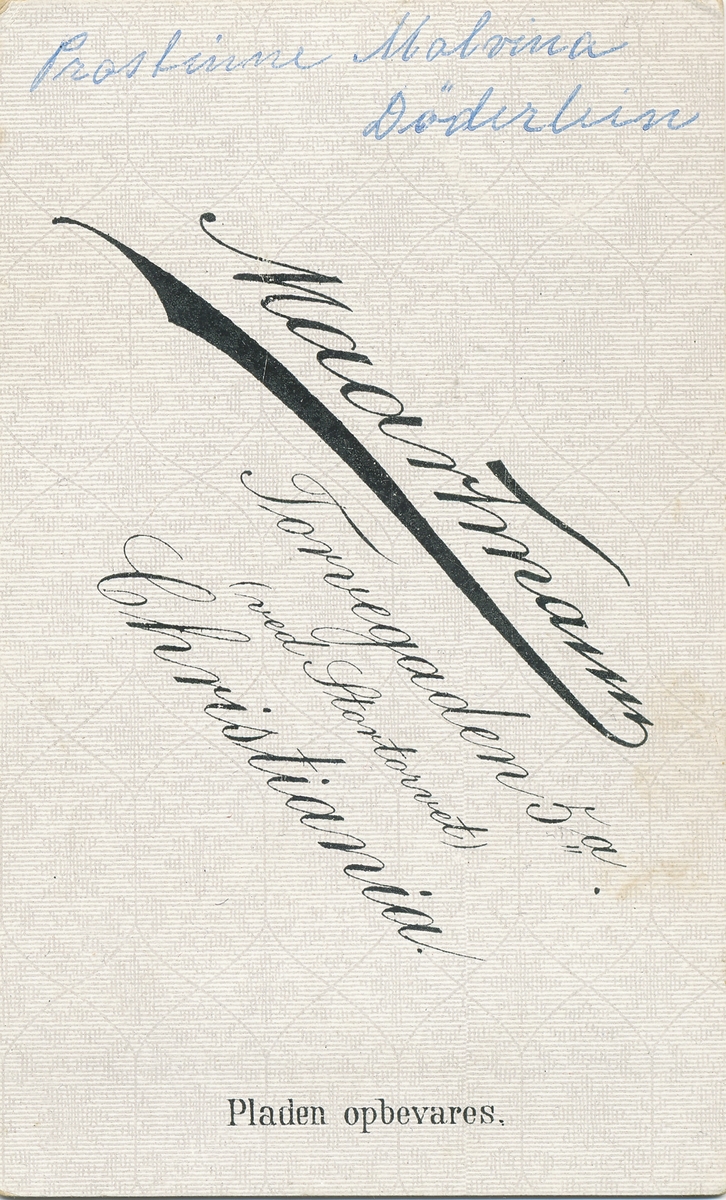 Prostinne Malvina
Döderlein
Maartmann
Torvegaden 5a.
(ved Stortorvet)
Christiania.
Pladen opbevares.